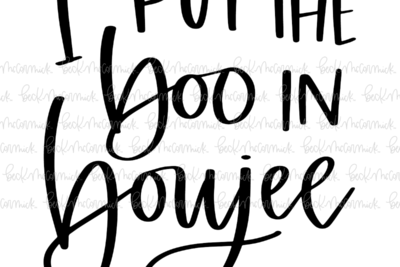 I PUT THE
boo IN
boujee